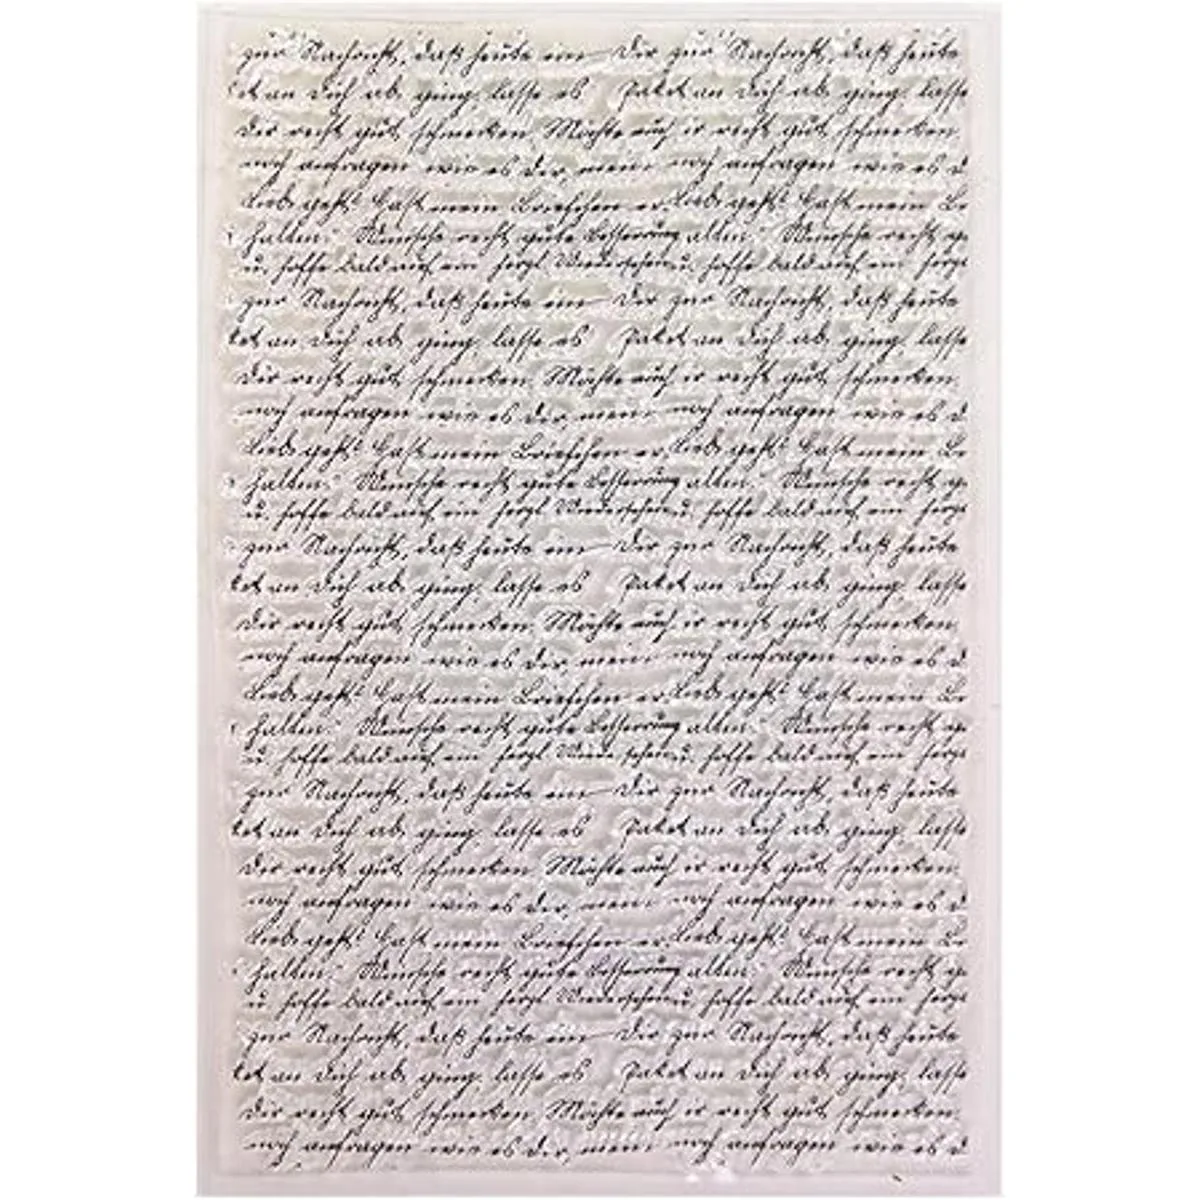 zur Nachricht, daß heute ein Dir zur Nachricht, daß heute
ket an Dich ab ging, lasse es Paket an Dich ab ging, lasse
Dir recht gut schmecken. Möchte auch ir recht gut schmecken.
noch anfragen wie es Dir, mein noch anfragen wie es d
geht? Hast mein Briefchen er geht? Hast mein Br
halten? Wünsche recht gute Besserung alten? Wünsche recht gu
u. hoffe bald auf ein herzl Wiedersehen u. hoffe bald auf ein herz
zur Nachricht, daß heute ein Dir zur Nachricht, daß heute
ket an Dich ab ging, lasse es Paket an Dich ab ging, lasse
Dir recht gut schmecken. Möchte auch ir recht gut schmecken.
noch anfragen wie es Dir, mein noch anfragen wie es d
geht? Hast mein Briefchen er geht? Hast mein Br
halten? Wünsche recht gute Besserung alten? Wünsche recht gu
u. hoffe bald auf ein herzl Wiedersehen u. hoffe bald auf ein herz
zur Nachricht, daß heute ein Dir zur Nachricht, daß heute
ket an Dich ab ging, lasse es Paket an Dich ab ging, lasse
Dir recht gut schmecken. Möchte auch ir recht gut schmecken.
noch anfragen wie es Dir, mein noch anfragen wie es d
geht? Hast mein Briefchen er geht? Hast mein Br
halten? Wünsche recht gute Besserung alten? Wünsche recht gu
u. hoffe bald auf ein herzl Wiedersehen u. hoffe bald auf ein herz
zur Nachricht, daß heute ein Dir zur Nachricht, daß heute
ket an Dich ab ging, lasse es Paket an Dich ab ging, lasse
Dir recht gut schmecken. Möchte auch ir recht gut schmecken.
noch anfragen wie es Dir, mein noch anfragen wie es d
geht? Hast mein Briefchen er geht? Hast mein Br
halten? Wünsche recht gute Besserung alten? Wünsche recht gu
u. hoffe bald auf ein herzl Wiedersehen u. hoffe bald auf ein herz
zur Nachricht, daß heute ein Dir zur Nachricht, daß heute
ket an Dich ab ging, lasse es Paket an Dich ab ging, lasse
Dir recht gut schmecken. Möchte auch ir recht gut schmecken.
noch anfragen wie es Dir, mein noch anfragen wie es d